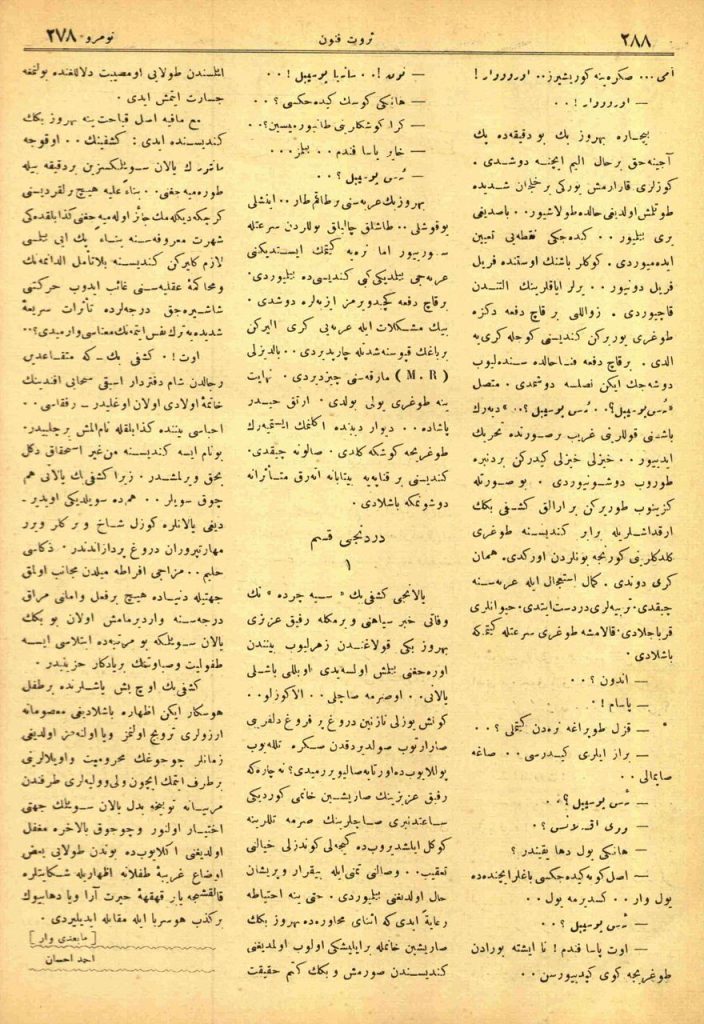 ٢٨٨
ثروت فنون
نومرو ٢٧٨
آمی... صکره ینه کوریشیرز.. اورووار!
— اورووار!..
بیچاره بهروز بك بو دقیقه ده پك
آجینه جق برحال الیم ایچنه دوشدی.
کوزلری قارارمش یورکی برخلجان شدیده
طوتلش اولدیغی حالده طولاشیور.. باصدیغی
یری بیلمیور.. کیده جکی نقطه یی تعیین
ایده میوردی. کوکلر باشنك اوستنده فریل
فریل دونیور.. یرلر ایاقلرینك آلتندن
قاچیوردی. زواللی بر قاچ دفعه دکزه
طوغری یورکن کندیسنی کوجله کری یه
آلدی. برقاچ دفعه فنا حالده سنده لیوب
دوشه جك ایکن نصلسه دوشمدی. متصل
دیه رك
باشنی قوللرینی غریب برصورتده تحریك
ایدییور.. خیزلی خیزلی کیدرکن بردنبره
طوروب دوشونیوردی. بو صورتله
کزینوب طورکن بر آرالق کشفی بکك
آرقداشلریله برابر کندیسنه طوغری
کلدکلرینی کورنجه بونلردن اورکدی. همان
کری دوندی. کمال استعجال ایله عربه سنه
چیقدی. تربیه لری دردست ایتدی. حیوانلری
قرباجلادی. قالامشه طوغری سرعتله کیتمکه
باشلادی.
— آندون؟..
— پاشام!.
— قزل طوپراغه نره دن کیتملی؟..
— براز ایلری کیدرسی.. صاغه
صاپمالی..
— هانکی یول دها یقیندر؟
— اصل کویه کیده جکسی باغلر ایچنده ده
یول وار.. کسدیرمه یول..
— اوت پاشا فندم! نا ایشته بورادن
طوغریجه کوی کیدییورسن.
— هانکی کوسك کیده جکسی؟..
— کرا کوشکارینی طانیورمیسین؟..
— خایر پاشا فندم.. بیلمز...
بهروز بك عربه سنی بر طاقم طار.. اینشلی
یوقوشلی.. طاشلق چالیلق یوللردن سرعتله
سوریور اما نره یه کیتمك ایستدیکنی
عربه جی بیلمدیکی کبی کندیسی ده بیلمیوردی.
برقاچ دفعه کچیدویرمز ایزبه لره دوشدی.
بیك مشکلات ایله عربه یی کری آلیرکن
برباغك قپوسنه شدتله چارپدیردی.. یالدیزلی
(M.R) مارقه سنی چیزدیردی. نهایت
ینه طوغری یولی بولدی. آرتق حیدر
پاشاده.. دیوار دیبنده اکلمك ایستمیه رك
طوغریجه کوشکه کلدی. صالونه چیقدی.
کندیسنی بر قناپه یه بیتابانه آته رق متأثرانه
دوشونمکه باشلادی.
دردنجی قسم
١
یالانجی کشفی بك " سیه چرده " نك
وفاتی خبر سیاهنی ویرمکله رفیق عزیزی
بهروز بکی قولاغندن زهرلیوب بیننندن
اوره جغنی بیلمش اولسه یدی اویللی باشلی
یالانی.. اوصرمه صاچلی.. الا کوزلو..
کونش یوزلی نازنین دروغ پر فروغ دلفریبی
صارارتوب صولدیردقدن سکره تللیوب
پوللایوب ده اورتایه صالیویررمیدی؟ نه چاره که
رفیق عزیزینك صاریشین خانمی کوردیکی
ساعتدنبری صاچلرینك صرمه تللرینه
کوکل ایلشدیروب ده کیجه لی کوندزلی خیالی
تعقیب.. وصالنی تمنی ایله بیقرار وپریشان
حال اولدیغنی بیلمیوردی. حتی بنه احتیاطه
رعایةً ایدی که اثنای محاوره ده بهروز بکك
صاریشین خانمله برایلیشکی اولوب اولمدیغنی
کندیسندن صورمش و بکك کتم حقیقت
ایتلسندن طولایی اومصیبت دلاللغنده بولنمغه
جسارت ایتمش ایدی.
مع مافیه اصل قباحت ینه بهروز بکك
کندیسنده ایدی: کشفینك.. اوقوجه
مانتورك یالان سویلمکسزین بر دقیقه بیله
طوره میه جغنی. بناءً علیه هیچ بر لقردیسنی
کریمکه دیکله مك جائز اوله میه جغنی کذابلقده کی
شهرت معروفه سنه بناءً پك ایی بیلمسی
لازم کلیرکن کندیسنه بلا تأمل الدانمه نك
ومحاکمهٔ عقلیه سنی غائب ایدوب حرکتنی
شاشیره جق درجه لرده تأثرات سریعهٔ
شدیده یه ترك نفس ایتمه نك معناسی وارمیدی؟..
اوت! کشفی بك — که متقاعدین
رجالدن شام دفترداری اسبقی سحابی افندینك
خاتمهٔ اولادی اولان اوغلیدر — رفقاسی..
احباسی بیننده کذابلقله نام آلمش برچلبیدر.
بونام ایسه کندیسنه من غیر استحقاق دکل
بحق ویرلمشدر. زیرا کشفی بك یالانی هم
چوق سویلر.. هم ده سویلدیکی اویدیر—
دیغی یالانلره کوزل شاخ و برکلر ویرر
مهارتپروران دروغ پردازاندندر. ذکاسی
حلیم.. مزاجی افراطه میلدن مجانب اولمق
جهتیله دنیاده هیچ برفعل وامانی مراق
درجه سنه واردیرمامش اولان بو بکك
یالان سویلمکه بو مرتبه ده ابتلاسی ایسه
طفولیت وصباوتنك بریادکار حزینیدر.
کشفی بك اوچ بش یاشلرنده برطفل
هوسکار ایکن اظهاره باشلادیغی معصومانه
آرزولری ترویج اولنمز ویا اوله مز اولدیغی
زمانلر چوجوغك محرومیت واویلالرینی
برطرف ایتمك ایچون ولی وولیه لری طرفندن
مربیانه توبیخه بدل یالان سویلمك جهتی
اختیار اولنور و چوجوق بالاخره مغفل
اولدیغنی آکلایوب ده بوندن طولایی بعض
اوضاع غریبهٔ طفلانه اظهاریله شکایتلره
قالقیشنجه یا بر قهقههٔ حیرت آرا ویا دها بیوك
برکذب هوسربا ایله مقابله ایدیلیردی.
[مابعدی وار]
احمد احسان